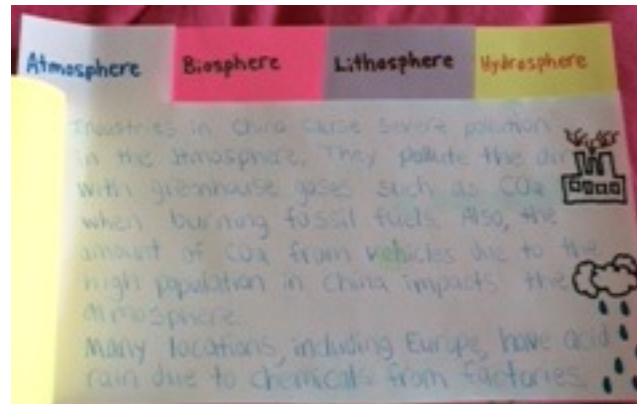 Atmosphere Biosphere Lithosphere Hydrosphere
Industries in China cause severe pollution
in the Atmosphere. They pollute the air
with greenhouse gases such as CO2
when burning fossil fuels. Also, the
amount of CO2 from vehicles due to the
high population in China impacts the
atmosphere.
Many locations, including Europe, have acid
rain due to chemicals from factories.